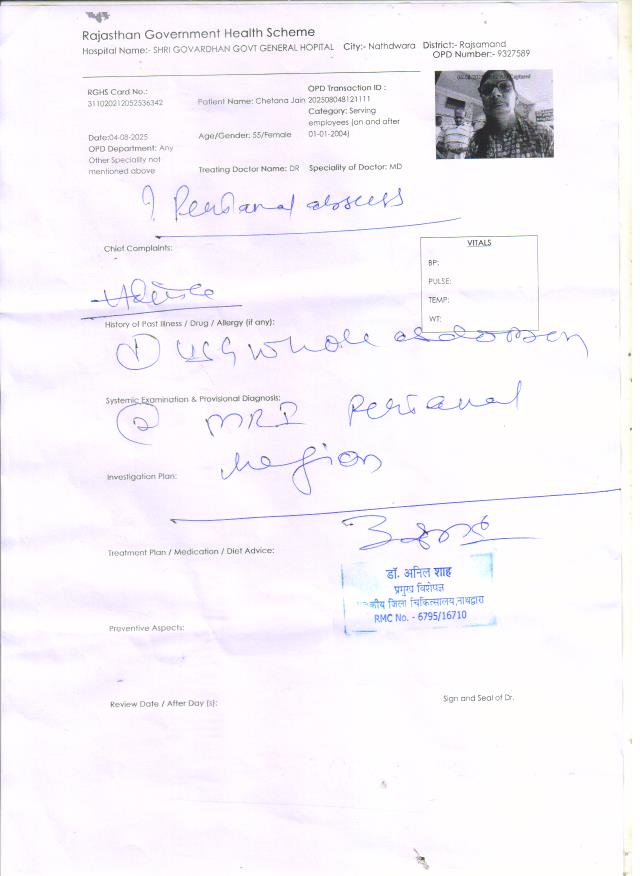 Rajasthan Government Health Scheme
Hospital Name:- SHRI GOVARDHAN GOVT GENERAL HOPITAL City:- Nathdwara District:- Rajsamand
OPD Number:- 9327589
RGHS Card No.:
311020212052536342
Patient Name: Chetana Jain
OPD Transaction ID :
202508048121111
Category: Serving
employees (on and after
01-01-2004)
Date:04-08-2025
OPD Department: Any
Other Speciality not
mentioned above
Age/Gender: 55/Female
Treating Doctor Name: DR Speciality of Doctor: MD
? Perianal abscess
Chief Complaints:
VITALS
BP:
PULSE:
TEMP:
WT:
Advise
History of Past Illness / Drug / Allergy (if any):
① USG whole abdomen
Systemic Examination & Provisional Diagnosis:
② MRI Perianal
region
Investigation Plan:
Treatment Plan / Medication / Diet Advice:
डॉ. अनिल शाह
प्रमुख विशेषज्ञ
जिला चिकित्सालय,नाथद्वारा
RMC No. - 6795/16710
Preventive Aspects:
Review Date / After Day (s):
Sign and Seal of Dr.